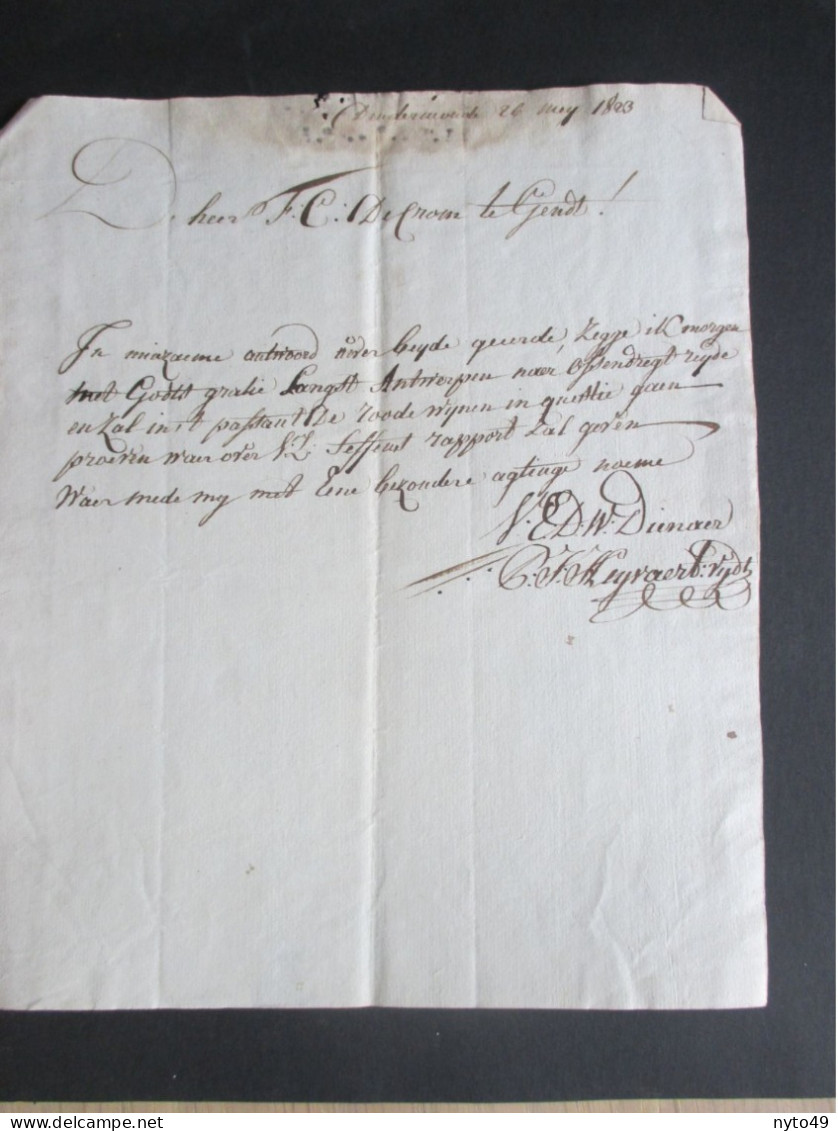 Dendermonde 26 mey 1823
De heer F: C: De Crom te Gendt!
In minzaeme antwoord uwer beyde geeerde, zegge ik morgen
met Godts gratie Langst Antwerpen naer Ossendregt reyde
en zal in't passant De roode wynen in questie gaen
proeven waer over UL: seffens rapport zal geven
Waer mede my met Eene bezondere agtinge noeme
V: E D: W: Dienaer
P: J: Heyvaert: vydt
Delcampe.net
nyto49